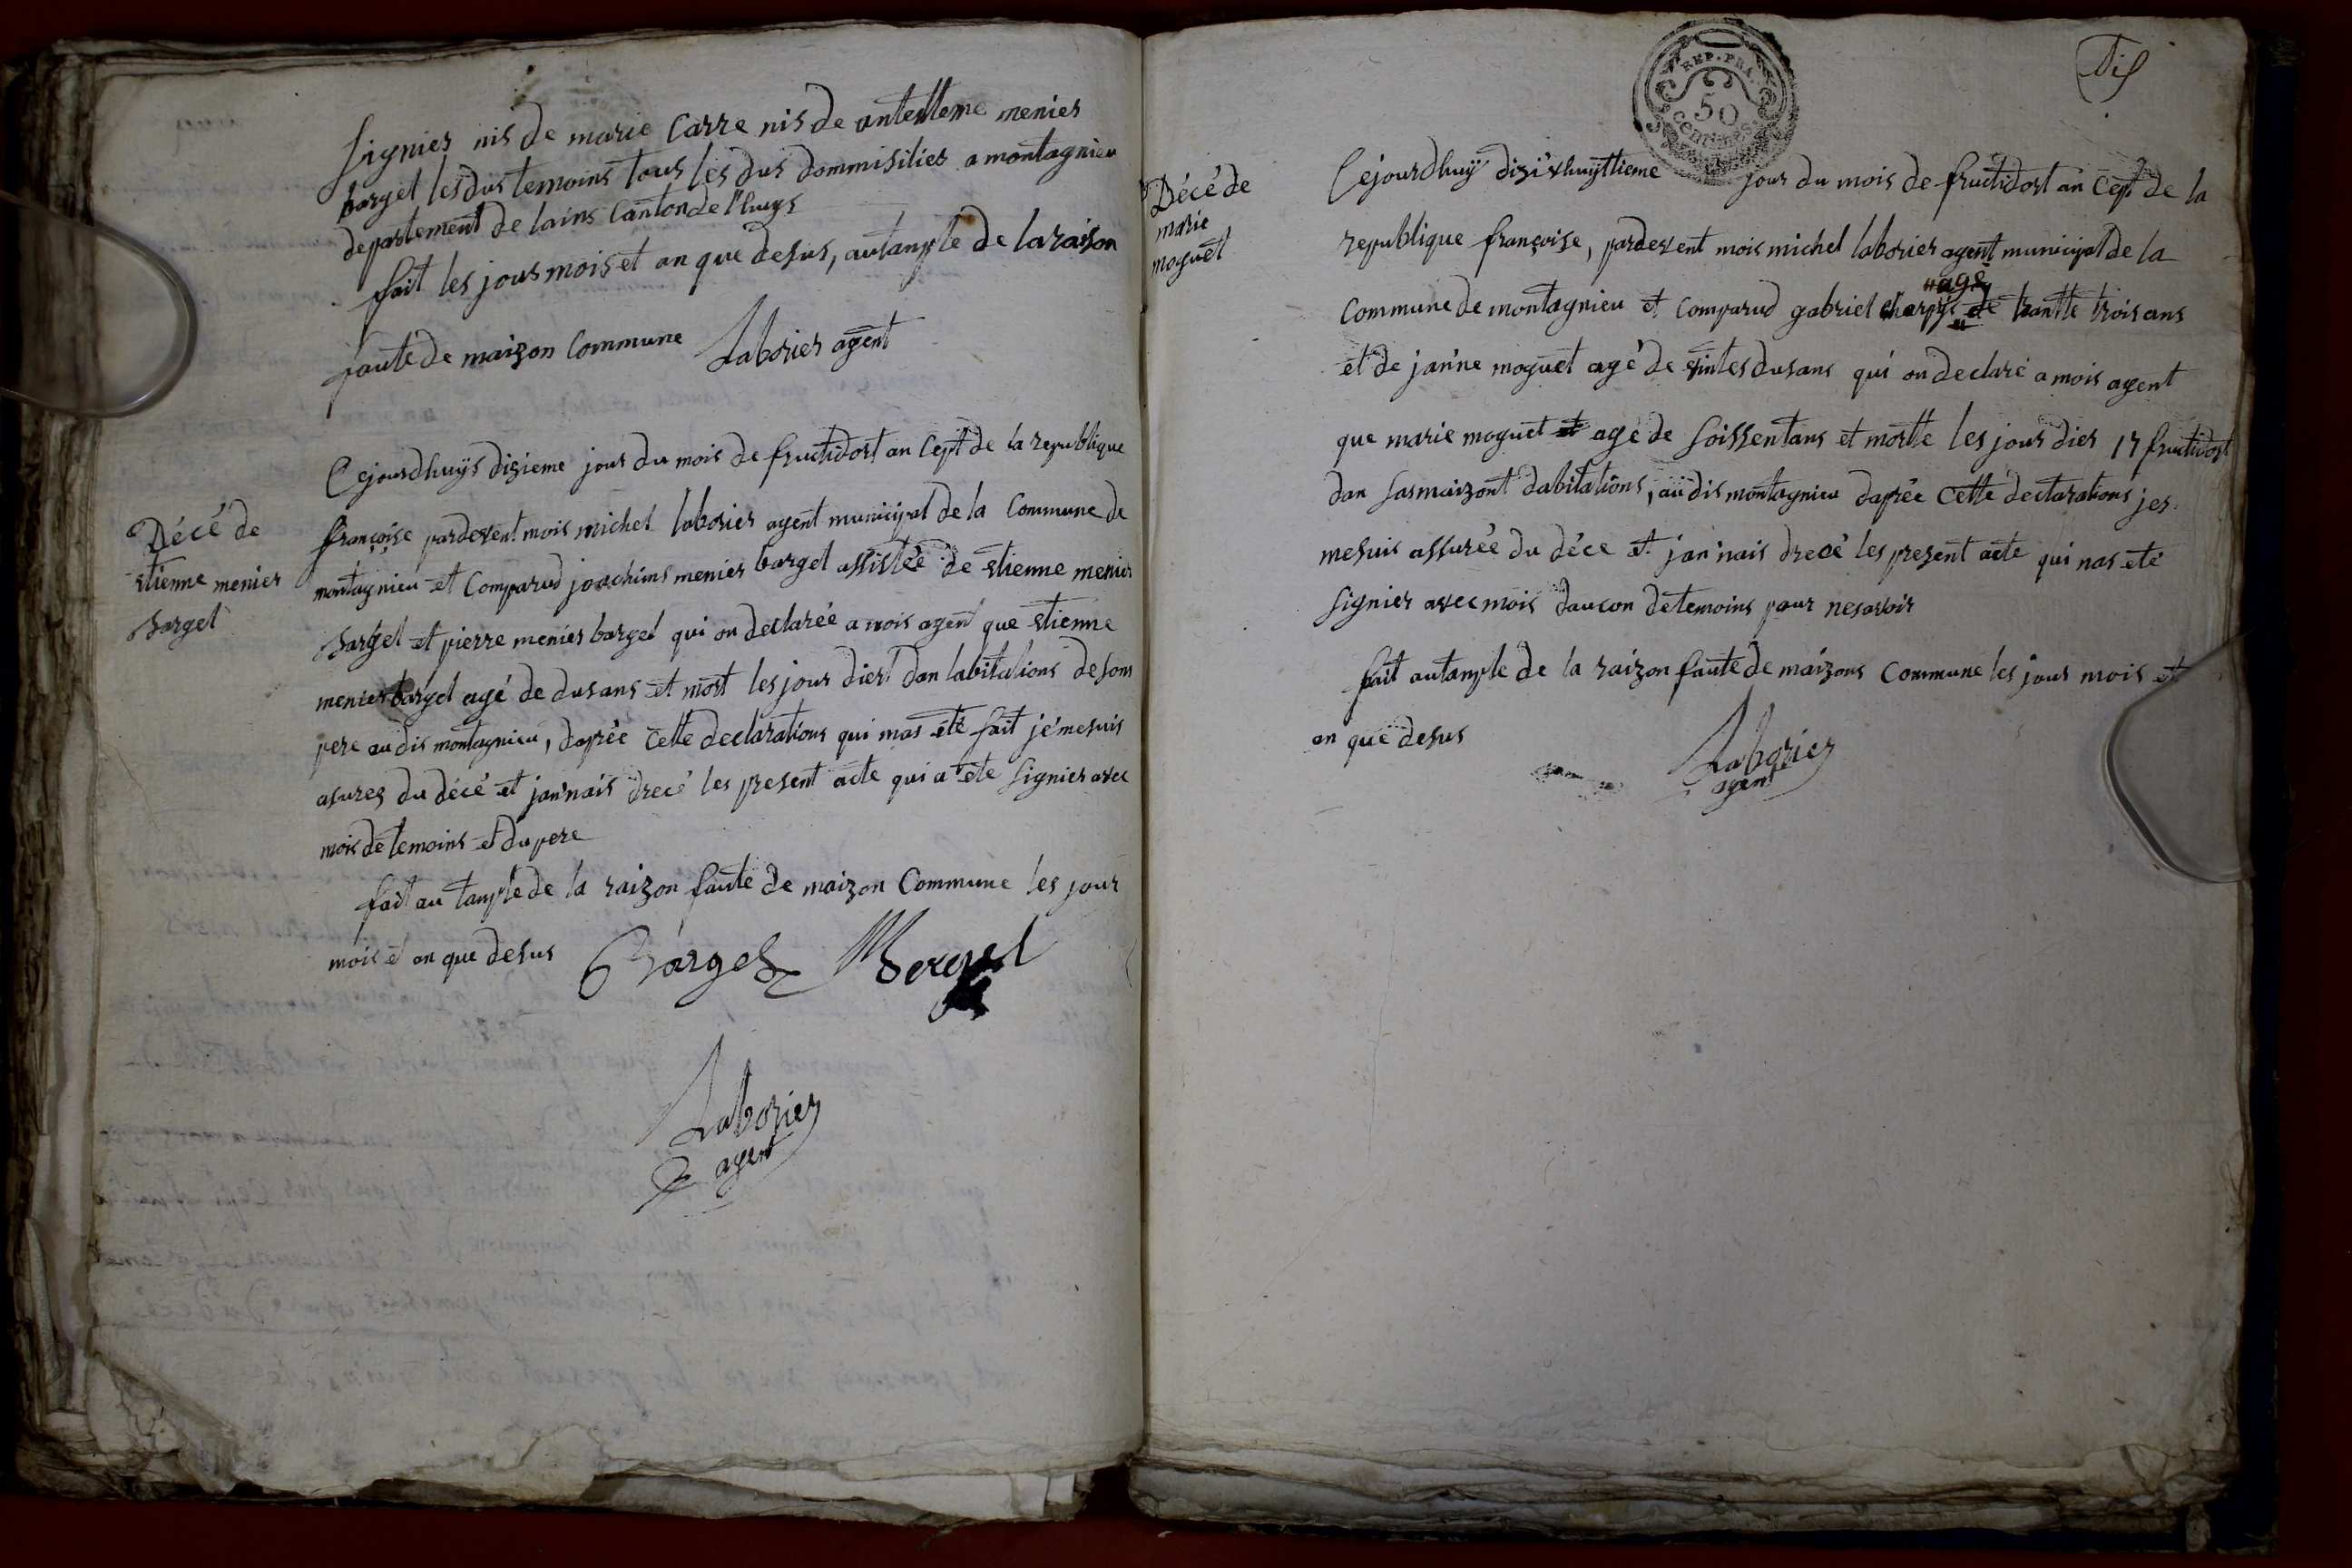 signier nis de marie Carre nis de antelleme menier
barget les dus temoins tous les dus dommisilier a montagnieu
departement de lains Canton de lhuys
fait les jour mois et an que desus, autample de la raison
faute de maizon Commune Laborier agent
Cejourdhuys disieme jour du mois de fructidort an Cept de la republique
Décé de
etienne menier
barget
françoise pardevent mois michel laborier agent municipal de la Commune de
montagnieu et Comparud joachims menier barget assistée de etienne menier
barget et pierre menier barget qui on declarée a mois agent que etienne
menier barget agé de dusans et mort les jour diert dan labitations de sons
pere au dis montagnieu, daprée Cette declarations qui mas été fait je mesuis
asurez du décé et jan'nais drecé les present acte qui a été signier avec
mois de temoins et du pere
fait au tample de la raizon faute de maizon Commune les jour
mois et an que desus Barget Berget
Laborier
agent
REP. FRA.
50
CENTIMES.
Dis
Décé de
marie
moguet
Cejourdhuy disixhuytieme jour du mois de fructidort an Cept de la
republique françoise, pardevent mois michel laborier agent municipal de la
Commune de montagnieu et Comparud gabriel charpy agé de trantte trois ans
et de jan'ne moguet agé de vintes dusans qui on declaré a mois agent
que marie moguet et agé de soissentans et mortte les jour dier 17 fructidort
dan sasmaizont dabitations, au dis montagnieu daprée Cette declarations jes
mesuis assurée du déce et jan'nais drecé les present acte qui nas été
signier avec mois daucon de temoins pour nesavoir
fait autample de la raizon faute de maizons Commune les jour mois et
an que desus
Laborier
agent